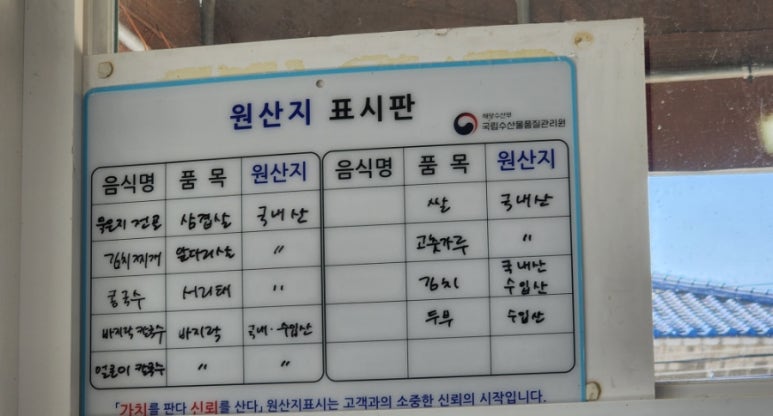 원산지 표시판
해양수산부
국립수산물품질관리원
음식명 품 목 원산지 음식명 품 목 원산지
묵은지 전골 삼겹살 국내산 쌀 국내산
김치찌개 앞다리살 〃 고춧가루 〃
콩국수 서리태 〃 김치 국내산 수입산
바지락 칼국수 바지락 국내·수입산 두부 수입산
얼큰이 칼국수 〃 〃
「가치를 판다 신뢰를 산다」 원산지표시는 고객과의 소중한 신뢰의 시작입니다.